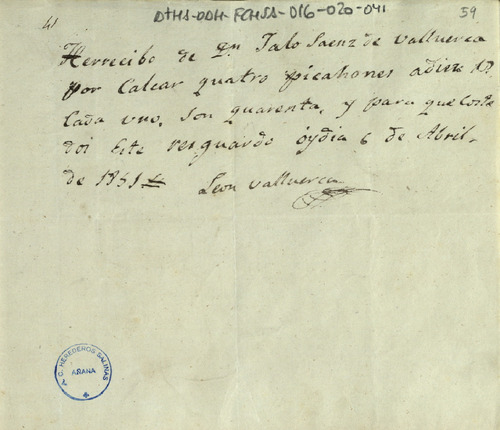 DTHA-DDH-FCHSA-016-020-041
59
41
Herrecibo de Dn Talo Saenz de Valluerca
por Calear quatro picahones adiez Rs
Cada uno, son quarenta, y para que Coste
doi Este resguardo oydia 6 de Abril
de 1831
Leon Valluerca
A. C. HEREDEROS SALINAS
AÑANA